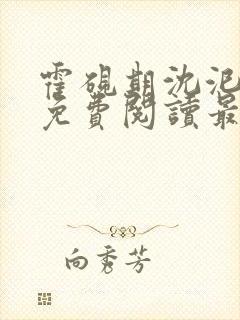 霍砚期沈泥
免費閱讀最
向秀芳